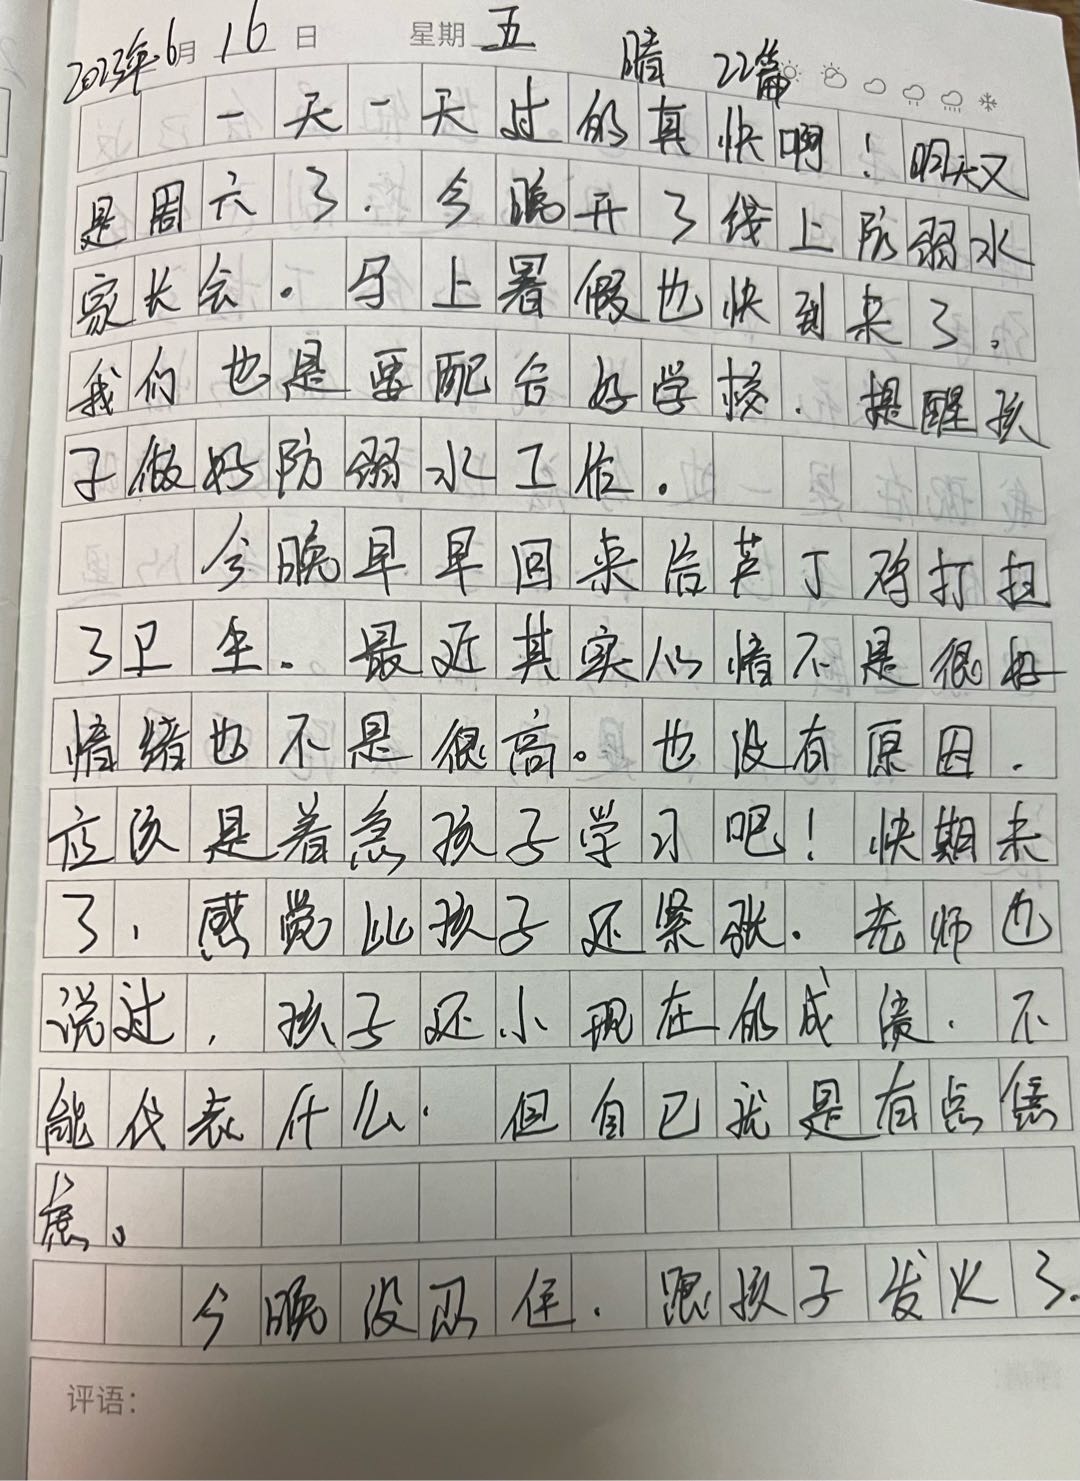 2023年6月16日 星期五 晴 22篇
一天一天过的真快啊!明天又
是周六了.今晚开了线上防溺水
家长会.马上暑假也快到来了,
我们也是要配合好学校.提醒孩
子做好防溺水工作.
今晚早早回来后 打扫
了卫生.最近其实心情不是很好
情绪也不是很高。也没有原因.
应该是着急孩子学习吧!快期末
了,感觉比孩子还紧张.老师也
说过,孩子还小现在的成绩.不
能代表什么.但自己就是有点焦
虑。
今晚没忍住.跟孩子发火了.
评语: